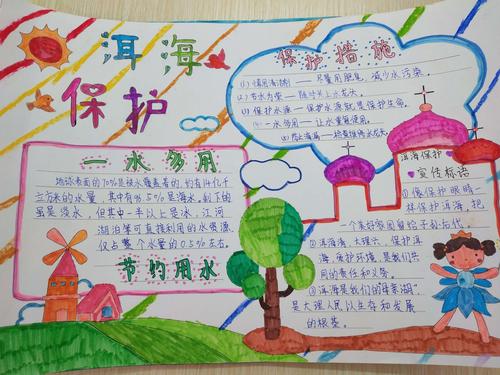 洱海
保护
一水多用
地球表面的70%是被水覆盖着的,约有14亿千
立方米的水量,其中有96.5%是海水,剩下的
虽是淡水,但其中一半以上是冰,江河
湖泊等可直接利用的水资源,
仅占整个水量的0.5%左右。
节约用水
保护措施
(1)慎用清洁剂——尽量用肥皂,减少水污染。
(2)节水为荣——随时关上水龙头。
(3)保护水源——保护水源就是保护生命。
(4)一水多用——让水重复使用。
洱海保护
宣传标语
①像保护眼睛一
样保护洱海,把
一个美好家园留给子孙后代
②洱海清,大理兴,保护洱
海,保护环境,是我们共
同的责任和义务。
③洱海是我们的"母亲湖"
是大理人民以生存和发展
的根基。